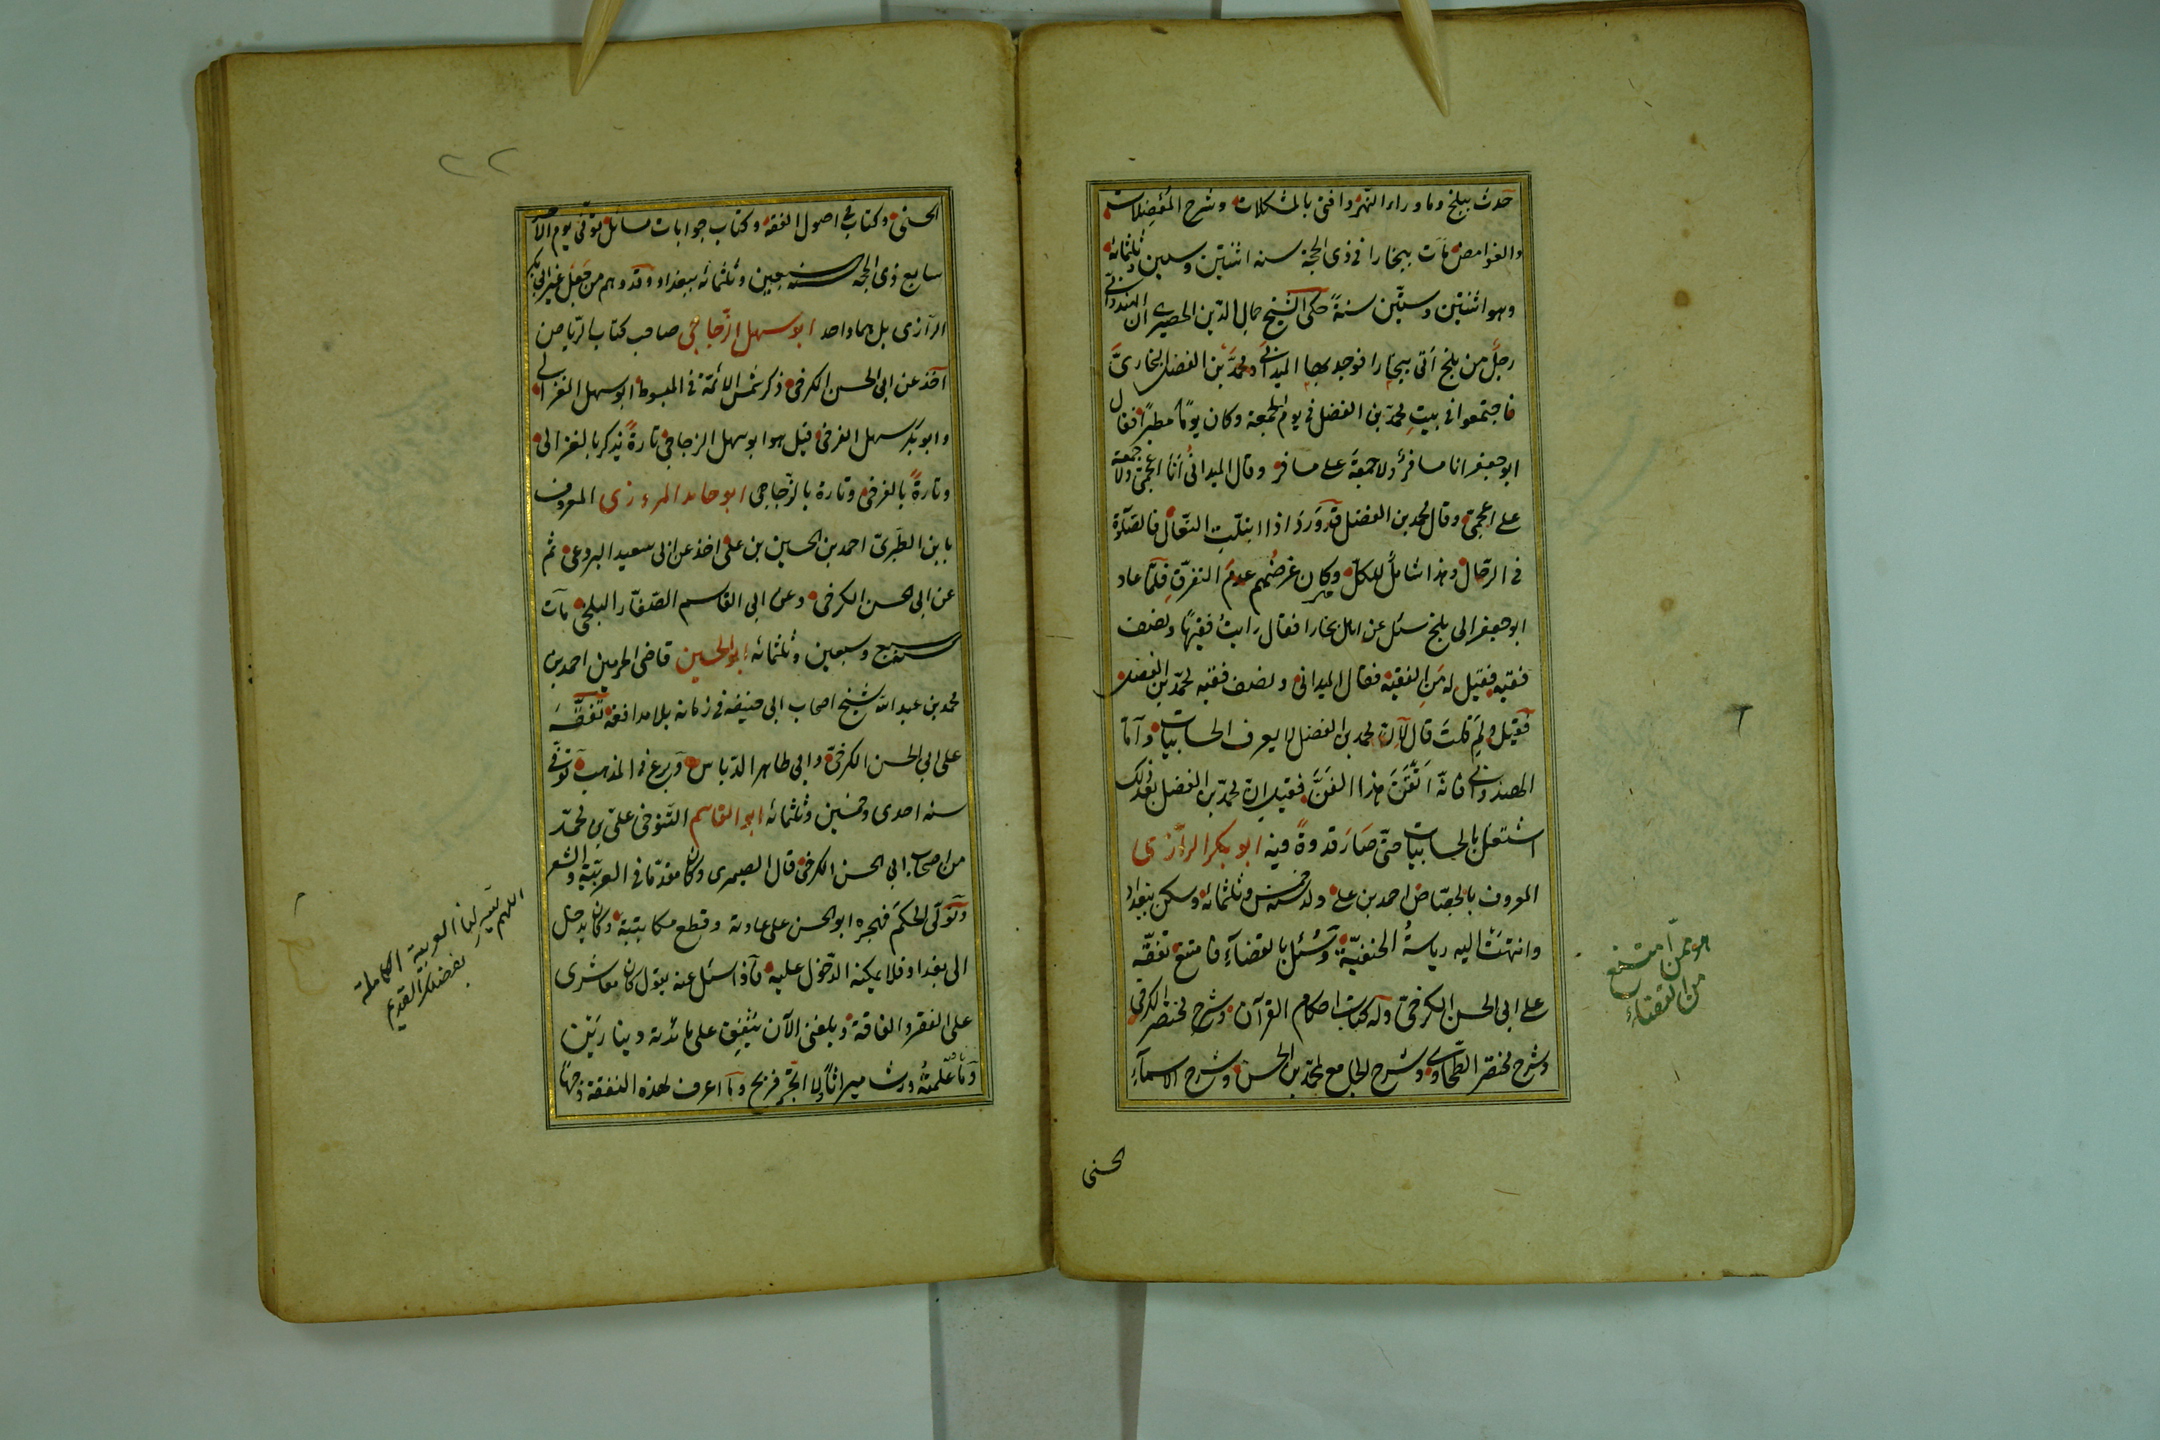 حدث ببلخ وما وراء النهر وافتى بالمشكلات وشرح المعضلات
والغوامض مات ببخارا في ذى الحجة سنه اثنتين وستين وثلثمائة
وهو اثنتين وستين سنةً حكى الشيخ جمال الدين الحصيرى ان الهندوانى
رجلٌ من بلخ اتى ببخارا فوجد بها الميدانى ومحمد بن الفضل البخارىّ
فاجتمعوا في بيت محمد بن الفضل في يوم الجمعة وكان يومًا مطيرًا فقال
ابو جعفر انا مسافر ولا جمعة على مسافر وقال الميدانى انا اعجمى ولا جمعة
على اعجمى وقال محمد بن الفضل قد ورد اذا ابتلت النعال فالصلوة
في الرحال وهذا شامل للكل وكان غرضهم عدم التفرق فلما عاد
ابو جعفر الى بلخ سئل عن اهل بخارا فقال رايت فقيهًا ونصف
فقيه فقيل له من الفقيه فقال الميدانى ونصف فقيه محمد بن الفضل
فقيل ولم قلت قال لان محمد بن الفضل لا يعرف الحسابيات واما
الميدانى فانه اتقن هذا الفن فقيل ان محمد بن الفضل بعد ذلك
اشتغل بالحسابيات حتى صار قدوة فيه ابو بكر الرازى
المعروف بالجصاص احمد بن على ولد سنة خمس وثلثمائة وسكن بغداد
وانتهت اليه رياسة الحنفية وسئل بالقضاء فامتنع تفقه
على ابى الحسن الكرخى وله كتاب احكام القرآن وشرح مختصر الكرخى
وشرح مختصر الطحاوى وشرح الجامع لمحمد بن الحسن وشرح الاسماء
الحسنى
هو ممن امتنع
من القضاء
٢٢
الحسنى وكتاب في اصول الفقه وكتاب جوابات مسائل توفى يوم الاحد
سابع ذى الحجه سنة سبعين وثلثمائه ببغداد وقد وهم من جعل غير ابى بكر
الرازى بل هما واحد ابو سهل الزجاجى صاحب كتاب الرياض
اخذ عن ابى الحسن الكرخى ذكر شمس الائمة في المبسوط ابو سهل الغزالى
وابو بكر سهل الفرضى قيل هو ابو سهل الزجاجى تارة يذكر بالغزالى
وتارة بالفرضى وتارة بالزجاجى ابو حامد المروزى المعروف
بابن الطبرى احمد بن الحسين بن على اخذ عن ابى سعيد البردعى ثم
عن ابى الحسن الكرخى وعن ابى القاسم الصفار البلخى مات
سنه سبع وسبعين وثلثمائه ابو الحسين قاضى الحرمين احمد بن
محمد بن عبد الله شيخ اصحاب ابى حنيفه في زمانه بلا مدافعة تفقه
على ابى الحسن الكرخى وابى طاهر الدباس وبرع في المذهب توفى
سنه احدى وخمسين وثلثمائه ابو القاسم التنوخى على بن محمد
من اصحاب ابى الحسن الكرخى قال الصيمرى وكان مقدما في العربية والشعر
وتولى الحكم فهجره ابو الحسن على عادته وقطع مكاتبته وكان يدخل
الى بغداد فلا يمكنه الدخول عليه فاذا سئل عنه يقول كان معاشرى
على الفقر والفاقة وبلغنى الآن ينفق على مائدته دينارين
وما علمته ورث ميراثا ولا اتجر فربح وما اعرف لهذه النفقة وجها
اللهم يسر لنا العربية الكاملة
بفضلك القديم